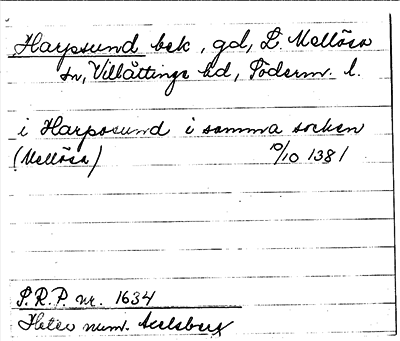 Harpsund bek, gd, L. Mellösa
sn, Villåttinge hd, Söderm. l.
i Harposund i samma socken
(Mellösa) 10/10 1381
S.R.P. nr. 1634
Heter num. Axelsberg